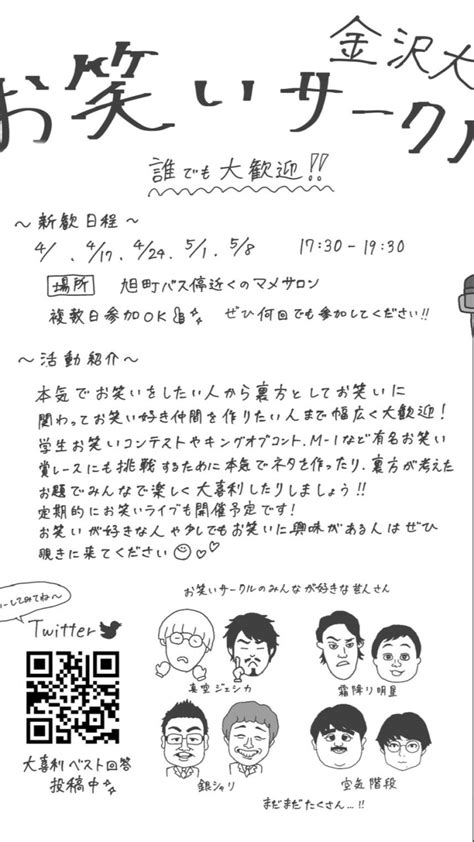 金沢大
お笑いサークル
誰でも大歓迎!!
～新歓日程～
4/ 、4/17、4/24、5/1、5/8 17:30-19:30
場所 旭町バス停近くのマメサロン
複数日参加OK ぜひ何回でも参加してください!!
～活動紹介～
本気でお笑いをしたい人から裏方としてお笑いに
関わってお笑い好き仲間を作りたい人まで幅広く大歓迎！
学生お笑いコンテストやキングオブコント、M-1など有名お笑い
賞レースにも挑戦するために本気でネタを作ったり、裏方が考えた
お題でみんなで楽しく大喜利したりしましょう!!
定期的にお笑いライブも開催予定です！
お笑いが好きな人や少しでもお笑いに興味がある人はぜひ
覗きに来てください
お笑いサークルのみんなが好きな芸人さん
ーしてみてね～
Twitter
真空ジェシカ
霜降り明星
大喜利ベスト回答
投稿中
銀シャリ
空気階段
まだまだたくさん…!!